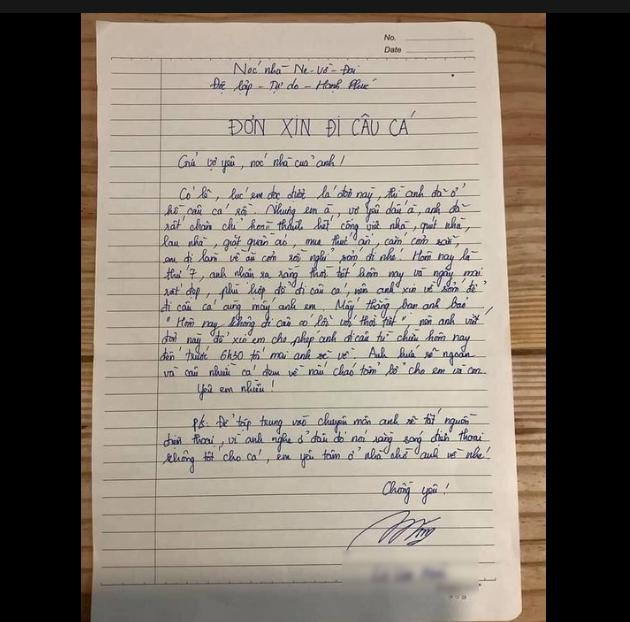 No.
Date
Nóc nhà Ne - Vờ - Đai
Độc lập - Tự do - Hạnh Phúc
ĐƠN XIN ĐI CÂU CÁ
Gửi vợ yêu, nóc nhà của anh!
Có lẽ, lúc em đọc được lá đơn này, thì anh đã ở
hồ câu cá rồi. Nhưng em à, vợ yêu dấu à, anh đã
rất chăm chỉ hoàn thành hết công việc nhà, quét nhà,
lau nhà, giặt quần áo, mua thức ăn, cắm cơm rồi,
em đi làm về ăn cơm rồi nghỉ sớm đi nhé! Hôm nay là
thứ 7, anh nhận ra rằng thời tiết hôm nay và ngày mai
rất đẹp, phù hợp để đi câu cá, nên anh xin về sớm để
đi câu cá cùng mấy anh em. Mấy thằng bạn anh bảo
"Hôm nay không đi câu có lỗi với thời tiết", nên anh viết
đơn này để xin em cho phép anh đi câu từ chiều hôm nay
đến trước 6h30 tối mai anh sẽ về. Anh hứa sẽ ngoan
và câu nhiều cá đem về nấu cháo tẩm bổ cho em và con.
Yêu em nhiều!
P/s: Để tập trung vào chuyên môn anh sẽ tắt nguồn
điện thoại, vì anh nghe ở đâu đó nói rằng sóng điện thoại
không tốt cho cá, em yên tâm ở nhà chờ anh về nhé!
Chồng yêu!